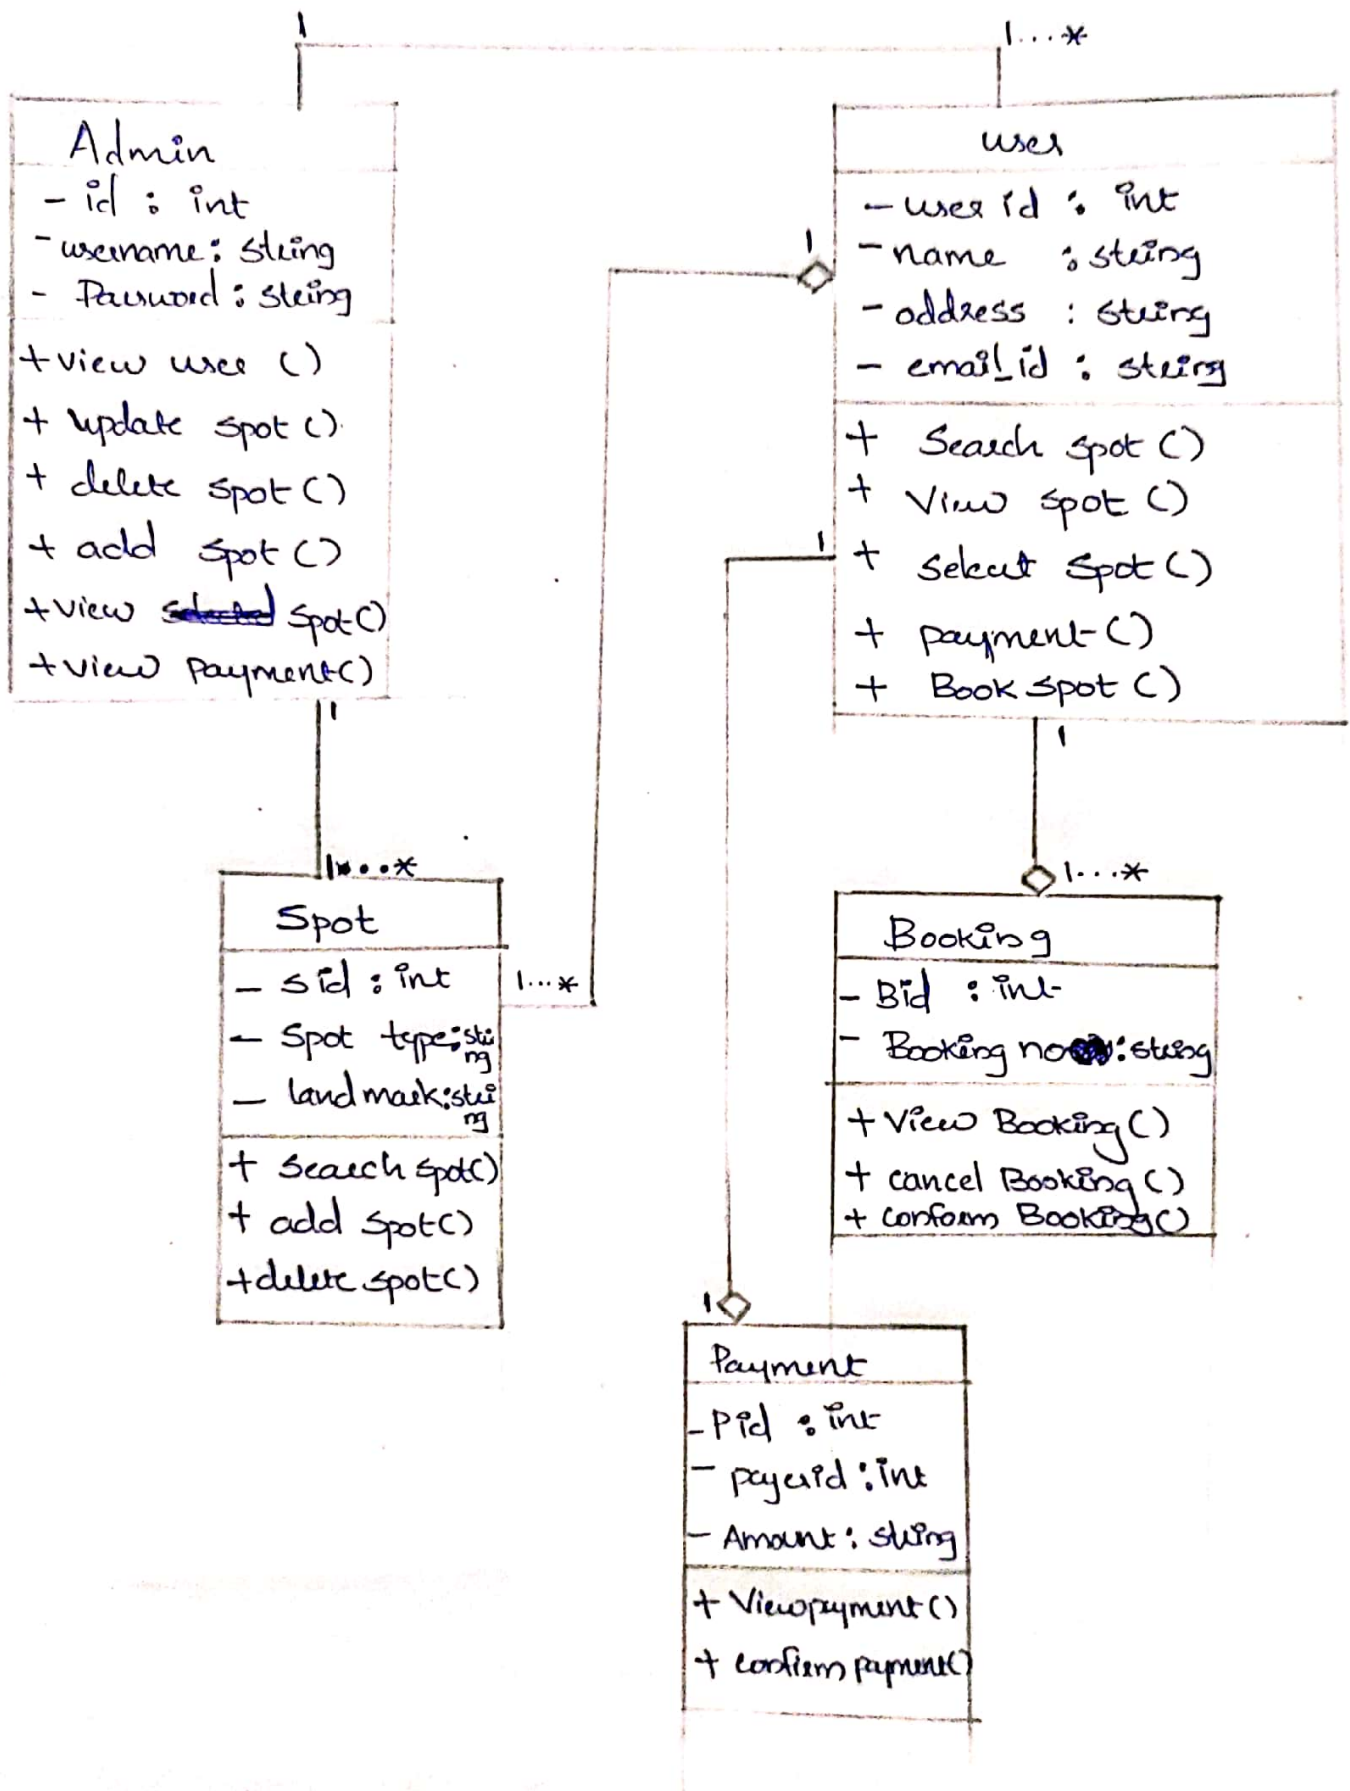 1
1...*
Admin
- id : int
- username : string
- Password : string
+ view user ()
+ update spot ()
+ delete spot ()
+ add spot ()
+ view spot ()
+ view payment ()
1
1...*
user
- user id : int
- name : string
- address : string
- email_id : string
+ Search spot ()
+ View spot ()
+ Select Spot ()
+ payment ()
+ Book spot ()
1
1
1
1...*
Spot
- sid : int
- Spot type : string
- landmark : string
+ search spot ()
+ add spot ()
+ delete spot ()
1...*
Booking
- Bid : int
- Booking no : string
+ View Booking ()
+ cancel Booking ()
+ conform Booking ()
1
Payment
- Pid : int
- payerid : int
- Amount : string
+ Viewpayment ()
+ confirm payment ()